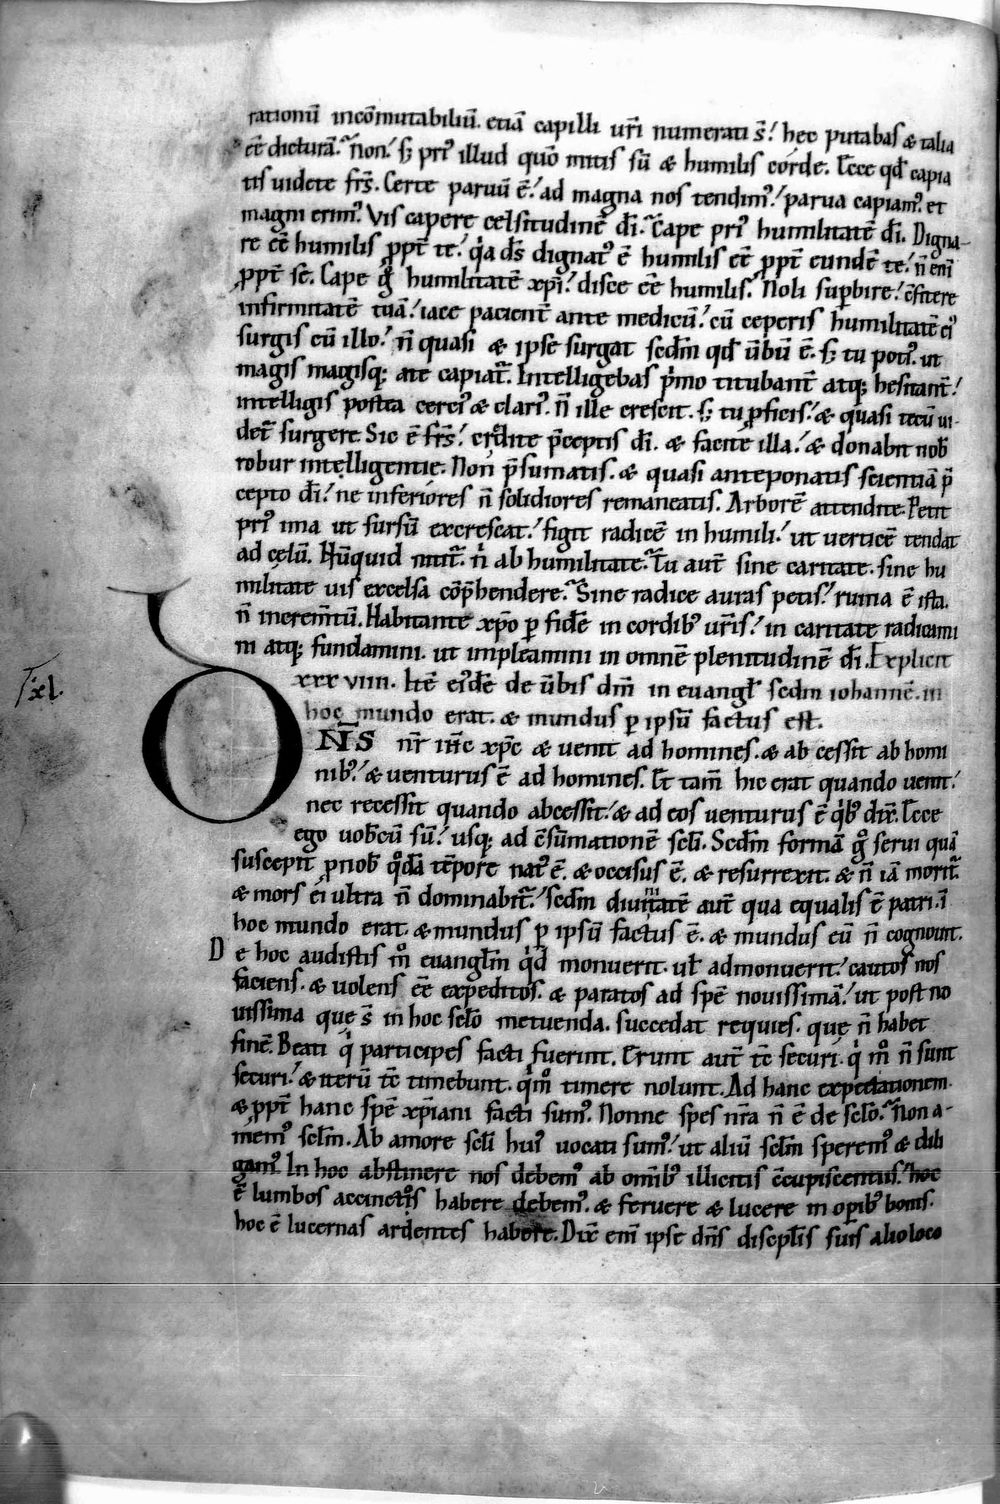 rationū incōmutabiliū. etiā capilli ur̄i numerati s̄! hęc putabas & talia
eē dicturā? Non! s; pri᷒ illud quō mitis sū & humilis corde. Ecce qđ capia
tis uidete fr̄s. Certe paruū ē! ad magna nos tendim᷒! parua capiam᷒. et
magni erim᷒. Vis capere celsitudinē dī? Cape pri᷒ humilitatē dī. Digna-
re eē humilis ꝓpt̄ te! q̇a ds̄ dignat᷒ ē humilis eē ꝓpt̄ eundē te! n̄ enī
ꝓpt̄ se. Cape g̊ humilitatē xp̄i! disce eē humilis. Noli suꝑbire! c̄fitere
infirmitatē tuā! iace pacient̄ ante medicū! cū ceperis humilitatē ei᷒
surgis cū illo! n̄ quasi & ipse surgat scd̄m qđ ūbū ē. s; tu poti᷒. ut
magis magisq; a te capiat᷑. Intelligebas p̄mo titubant̄ atq; hesitant̄!
intelligis postea cerci᷒ & clari᷒. n̄ ille crescit. s; tu ꝓficis! & quasi tecū ui-
det᷑ surgere. Sic ē fr̄s! credite p̄ceptis dī. & facite illa! & donabit nob̄
robur intelligentie. Non p̄sumatis. & quasi anteponatis scientiā p̄
cepto dī! ne inferiores n̄ solidiores remaneatis. Arborē attendite. Petit
pri᷒ ima ut sursū excrescat! figit radicē in humili! ut verticē tendat
ad celū. Nūquid nitit᷑. n̄ ab humilitate? Tu aut̄ sine caritate. sine hu
militate uis excelsa cōp̄hendere? Sine radice auras petis? ruina ē ista.
n̄ increm̄tū. Habitante xp̄o ꝑ fidē in cordib᷒ ur̄is! in caritate radicami
ni atq; fundamini. ut impleamini in omnē plenitudinē dī. Explicit
xxx viiii. Itē ei᷒dē de ūbis dn̄i in euangł scdm iohannē. in
hoc mundo erat. & mundus ꝑ ipsū factus est.
T̄. xl.
DN̄S nr̄ ih̄c xp̄c & uenit ad homines. & ab cessit ab homi
nib᷒! & uenturus ē ad homines. Et tam̄ hic erat quando uenit!
nec recessit quando abcessit! & ad eos uenturus ē q̇b᷒ dix̄. Ecce
ego uobcū sū! usq; ad c̄sūmationē scłi. Scd̄m formā g̊ serui quā
suscepit ꝓ nob̄ q̊dā tēpore nat᷒ ē. & occisus ē. & resurrexit. & n̄ iā morit᷑.
& mors ei ultra n̄ dominabit᷑! scd̄m diuinitatē aut̄ qua equalis ē patri. ī
hoc mundo erat. & mundus ꝑ ipsū factus ē. & mundus eū n̄ cognouit.
D e hoc audistis m̊ euangłm q̇d monuerit. uł admonuerit! cautos nos
faciens. & uolens eē expeditos. & paratos ad spē nouissimā! ut post no
uissima que s̄ in hoc scło metuenda. succedat requies. que n̄ habet
finē. Beati q̇ participes facti fuerint. Erunt aut̄ tc̄ securi. q̇ m̊ n̄ sunt
securi! & iterū tc̄ timebunt. q̇ m̊ timere nolunt. Ad hanc expectationem.
& ꝓpt̄ hanc spē xp̄iani facti sum᷒. Nonne spes nr̄a n̄ ē de scło? Non a-
mem᷒ scłm. Ab amore scłi hui᷒ uocati sum᷒! ut aliū scłm sperem᷒ & dili
gam᷒. In hoc abstinere nos debem᷒ ab om̄ib᷒ illicitis c̄cupiscentiis! hoc
ē lumbos accinctos habere debem᷒. & feruere & lucere in oꝑib᷒ bonis.
hoc ē lucernas ardentes habere. Dix̄ enī ipse dn̄s discipłis suis alio loco